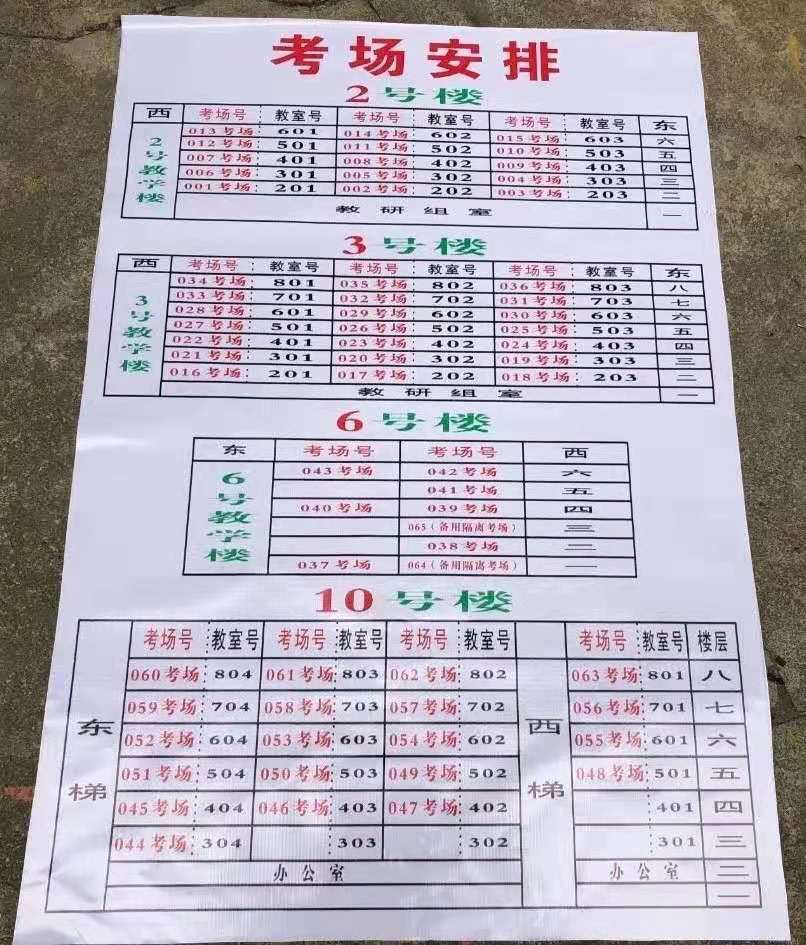 考场安排
2号楼
西 考场号 教室号 考场号 教室号 考场号 教室号 东
2号教学楼
013考场 601 014考场 602 015考场 603 六
012考场 501 011考场 502 010考场 503 五
007考场 401 008考场 402 009考场 403 四
006考场 301 005考场 302 004考场 303 三
001考场 201 002考场 202 003考场 203 二
教研组室 一
3号楼
西 考场号 教室号 考场号 教室号 考场号 教室号 东
3号教学楼
034考场 801 035考场 802 036考场 803 八
033考场 701 032考场 702 031考场 703 七
028考场 601 029考场 602 030考场 603 六
027考场 501 026考场 502 025考场 503 五
022考场 401 023考场 402 024考场 403 四
021考场 301 020考场 302 019考场 303 三
016考场 201 017考场 202 018考场 203 二
教研组室 一
6号楼
东 考场号 考场号 西
6号教学楼
043考场 042考场 六
041考场 五
040考场 039考场 四
065(备用隔离考场) 三
038考场 二
037考场 064(备用隔离考场) 一
10号楼
考场号 教室号 考场号 教室号 考场号 教室号 考场号 教室号 楼层
东梯
西梯
060考场 804 061考场 803 062考场 802 063考场 801 八
059考场 704 058考场 703 057考场 702 056考场 701 七
052考场 604 053考场 603 054考场 602 055考场 601 六
051考场 504 050考场 503 049考场 502 048考场 501 五
045考场 404 046考场 403 047考场 402 401 四
044考场 304 303 302 301 三
办公室 办公室 二
一